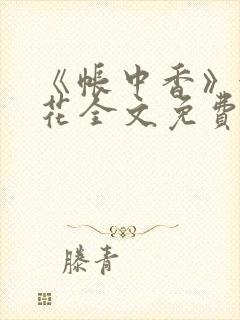 《帐中香》
花全文免費
滕青